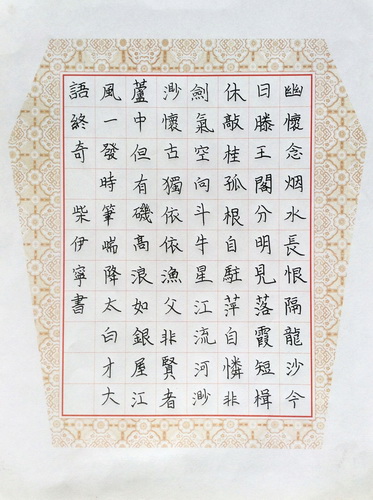 幽懷念烟水長恨隔龍沙今
日滕王閣分明見落霞短楫
休敲桂孤根自駐萍自憐非
劍氣空向斗牛星江流河渺
渺懷古獨依依漁父非賢者
蘆中但有磯高浪如銀屋江
風一發時筆端降太白才大
語終奇 柴伊寧書